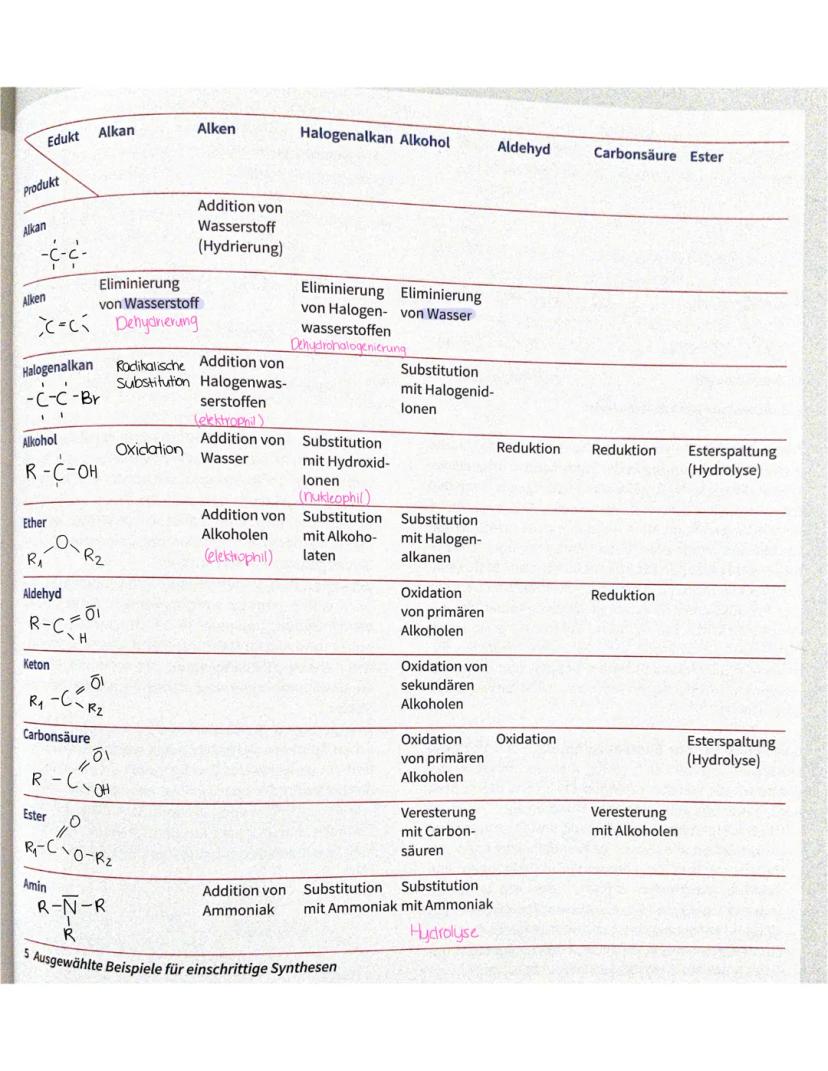 Edukt Alkan Alken Halogenalkan Alkohol Aldehyd Carbonsäure Ester
Produkt
Alkan
-C-C-
Addition von
Wasserstoff
(Hydrierung)
Alken
C=C
Eliminierung
von Wasserstoff
Dehydrierung
Eliminierung
von Halogen-
wasserstoffen
Dehydrohalogenierung
Eliminierung
von Wasser
Halogenalkan
-C-C-Br
Radikalische
Substitution
Addition von
Halogenwas-
serstoffen
(elektrophil)
Substitution
mit Halogenid-
Ionen
Alkohol
R-C-OH
Oxidation
Addition von
Wasser
Substitution
mit Hydroxid-
Ionen
(nukleophil)
Reduktion
Reduktion
Esterspaltung
(Hydrolyse)
Ether
R1 O R2
Addition von
Alkoholen
(elektrophil)
Substitution
mit Alkoho-
laten
Substitution
mit Halogen-
alkanen
Aldehyd
R-C=O
H
Oxidation
von primären
Alkoholen
Reduktion
Keton
R1-C=O
R2
Oxidation von
sekundären
Alkoholen
Carbonsäure
R-C=O
OH
Oxidation
von primären
Alkoholen
Oxidation
Esterspaltung
(Hydrolyse)
Ester
O
R1-C
O-R2
Veresterung
mit Carbon-
säuren
Veresterung
mit Alkoholen
Amin
R-N-R
R
Addition von
Ammoniak
Substitution
mit Ammoniak
Substitution
mit Ammoniak
Hydrolyse
5 Ausgewählte Beispiele für einschrittige Synthesen